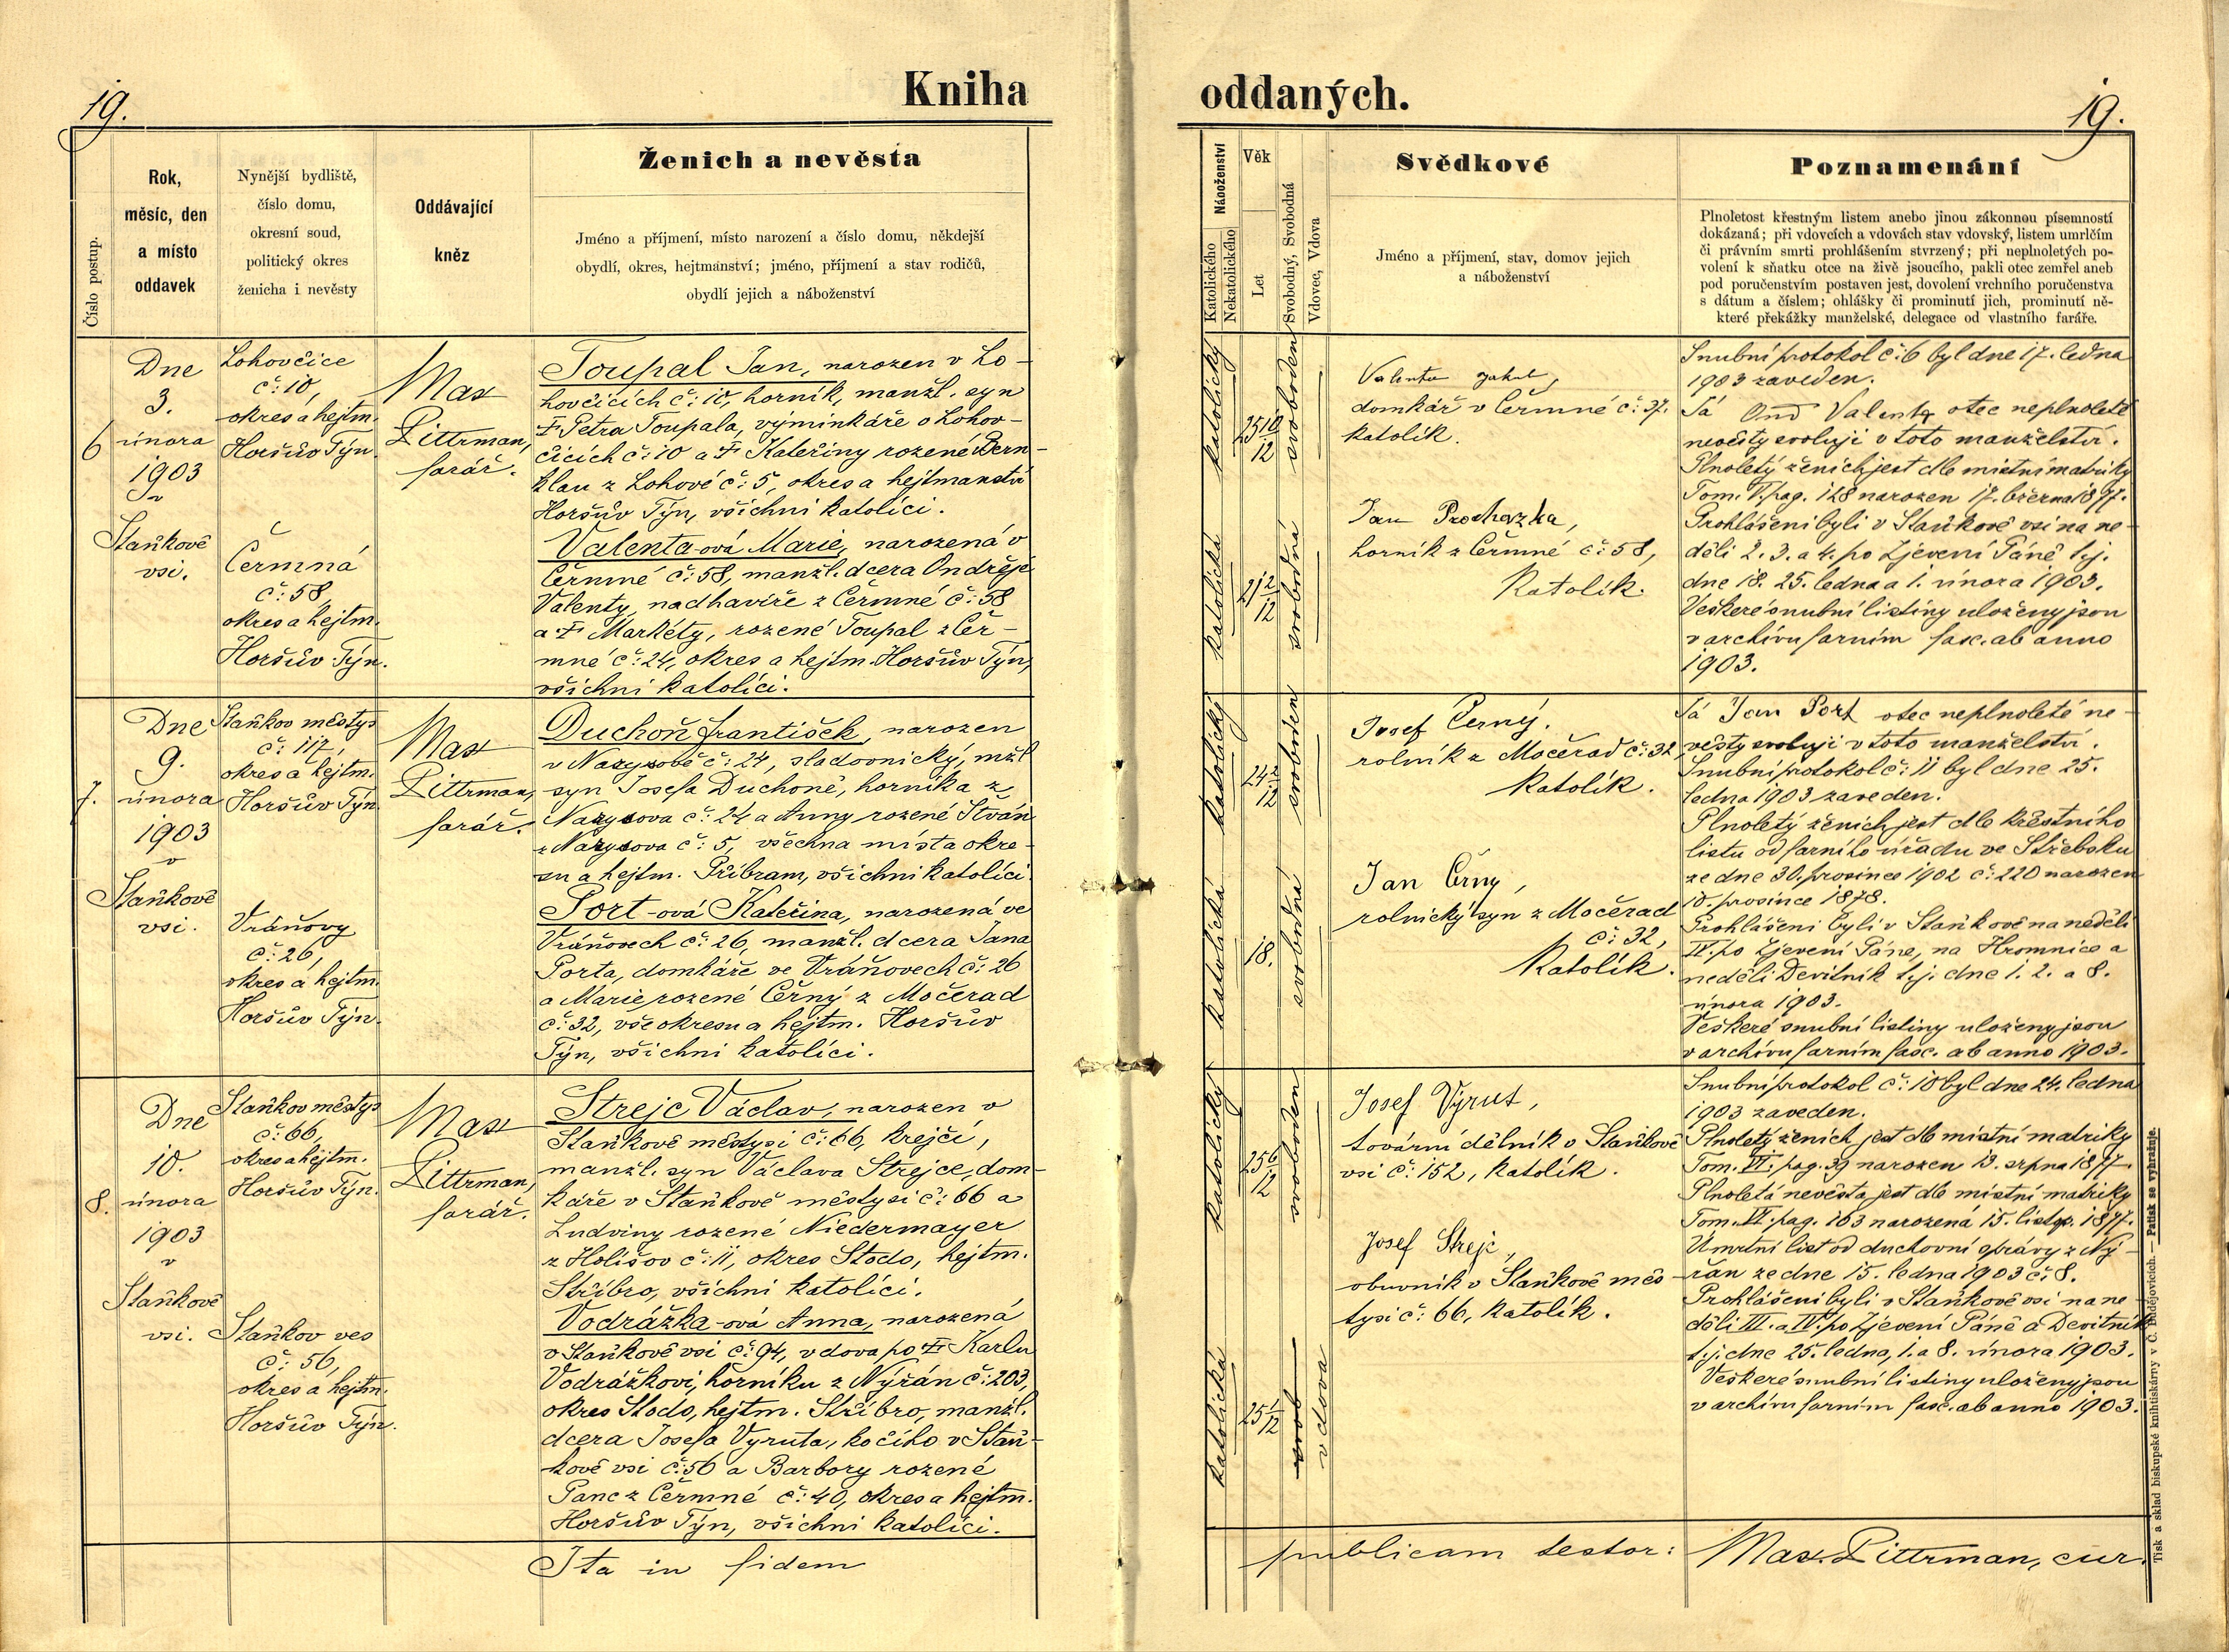 19.
Kniha
Číslo postup.
Rok,
měsíc, den
a místo
oddavek
Nynější bydliště,
číslo domu,
okresní soud,
politický okres
ženicha i nevěsty
Oddávající
kněz
Ženich a nevěsta
Jméno a příjmení, místo narození a číslo domu, někdejší
obydlí, okres, hejtmanství; jméno, příjmení a stav rodičů,
obydlí jejich a náboženství
6
Dne
3.
února
1903
v
Staňkově
vsi.
Lohovčice
č: 10,
okres a hejtm.
Horšův Týn.
Čermná
č: 58,
okres a hejtm.
Horšův Týn.
Max
Littrman,
farář.
Toupal Jan, narozen v Lo-
hovčicích č: 10, horník, manžl. syn
† Petra Toupala, výminkáře v Lohov-
čicích č: 10 a † Kateřiny rozené Bern-
klau z Lohové č: 5, okres a hejtmanství
Horšův Týn, všichni katolíci.
Valenta-ová Marie, narozená v
Čermné č: 58, manžl. dcera Ondřeje
Valenty, nadhavíře z Čermné č: 58
a † Markéty, rozené Toupal z Čer-
mné č: 24, okres a hejtm. Horšův Týn,
všichni katolíci.
7.
Dne
9.
února
1903
v
Staňkově
vsi.
Staňkov městys
č: 117,
okres a hejtm.
Horšův Týn
Vráňovy
č: 26,
okres a hejtm.
Horšův Týn.
Max
Littrman,
farář.
Duchoň František, narozen
v č: 24, sladovnický, mžl
syn Josefa Duchoně, horníka z
č: 24 a Anny rozené
z č: 5, všechna místa okre-
su a hejtm. Příbram, všichni katolíci.
Port-ová Kateřina, narozená ve
Vráňovech č: 26, manžl. dcera Jana
Porta, domkáře ve Vráňovech č: 26
a Marie rozené Černý z Močerad
č: 32, vše okresu a hejtm. Horšův
Týn, všichni katolíci.
8.
Dne
10.
února
1903
v
Staňkově
vsi.
Staňkov městys
č: 66,
okres a hejtm.
Horšův Týn.
Staňkov ves
č: 56,
okres a hejtm.
Horšův Týn.
Max
Littrman,
farář.
Strejc Václav, narozen v
Staňkově městysi č: 66, krejčí,
manžl. syn Václava Strejce, dom-
káře v Staňkově městysi č: 66 a
Ludviny rozené Niedermayer
z Holišov č: 11, okres Stodo, hejtm.
Stříbro, všichni katolíci.
Vodrážka-ová Anna, narozená
v Staňkově vsi č: 94, vdova po † Karlu
Vodrážkovi, horníku z Nýřan č: 203,
okres Stodo, hejtm. Stříbro, manžl.
dcera Josefa Vyruta, kočího v Staň-
kově vsi č: 56 a Barbory rozené
Panc z Čermné č: 40, okres a hejtm.
Horšův Týn, všichni katolíci.
Ita in fidem
oddaných.
19.
Náboženství
Katolického
Nekatolického
Věk
Let
Svobodný, Svobodná
Vdovec, Vdova
Svědkové
Jméno a příjmení, stav, domov jejich
a náboženství
Poznamenání
Plnoletost křestným listem anebo jinou zákonnou písemností
dokázaná; při vdovcích a vdovách stav vdovský, listem umrlčím
či právním smrti prohlášením stvrzený; při neplnoletých po-
volení k sňatku otce na živě jsoucího, pakli otec zemřel aneb
pod poručenstvím postaven jest, dovolení vrchního poručenstva
s dátum a číslem; ohlášky či prominutí jich, prominutí ně-
které překážky manželské, delegace od vlastního faráře.
katolický
25 10/12
svoboden
katolická
21 2/12
svobodná
Valenta Jakub,
domkář v Čermné č: 37.
katolík.
Jan Prochazka,
horník z Čermné č: 58,
Katolík.
Snubní protokol č: 6 byl dne 17. ledna
1903 zaveden.
Já Ond Valenta otec neplnoleté
nevěsty svoluji v toto manželství.
Plnoletý ženich jest dle místní matriky
Tom. V. pag. 128 narozen 17. března 1877.
Prohlášeni byli v Staňkově vsi na ne-
děli 2. 3. a 4. po Zjevení Páně t.j.
dne 18. 25. ledna a 1. února 1903.
Veškeré snubní listiny uloženy jsou
v archivu farním fasc. ab anno
1903.
katolický
24 2/12
svoboden
katolická
18.
svobodná
Josef Černý.
rolník z Močerad č: 32,
katolík.
Jan Černy,
rolnický syn z Močerad
č: 32,
Katolík.
Já Jan Port otec neplnoleté ne-
věsty svoluji v toto manželství.
Snubní protokol č: 11 byl dne 25.
ledna 1903 zaveden.
Plnoletý ženich jest dle křestního
listu od farního úřadu ve Střebsku
ze dne 30. prosince 1902 č: 220 narozen
10. prosince 1878.
Prohlášeni byli v Staňkově na neděli
IV. po Zjevení Páně, na Hromnice a
neděli Devítník t.j. dne 1. 2. a 8.
února 1903.
Veškeré snubní listiny uloženy jsou
v archivu farním fasc. ab anno 1903.
katolický
25 6/12
svoboden
katolická
25 1/12
svob
vdova
Josef Vyrut,
tovární dělník v Staňkově
vsi č: 152, katolík.
Josef Strejc,
obuvník v Staňkově měs-
tysi č: 66, katolík.
Snubní protokol č: 10 byl dne 24. ledna
1903 zaveden.
Plnoletý ženich jest dle místní matriky
Tom. VI. pag. 39 narozen 13. srpna 1877.
Plnoletá nevěsta jest dle místní matriky
Tom. VI. pag. 163 narozená 15. listop. 1877.
Úmrtní list od duchovní správy z Ný-
řan ze dne 15. ledna 1903 č: 8.
Prohlášeni byli v Staňkově vsi na ne-
děli III. a IV. po Zjevení Páně a Devítník
t.j. dne 25. ledna, 1. a 8. února 1903.
Veškeré snubní listiny uloženy jsou
v archivu farním fasc. ab anno 1903.
publicam testor: Max. Littrman, cur.
Tisk a sklad biskupské knihtiskárny v Č. Budějovicích. — Patisk se vyhražuje.